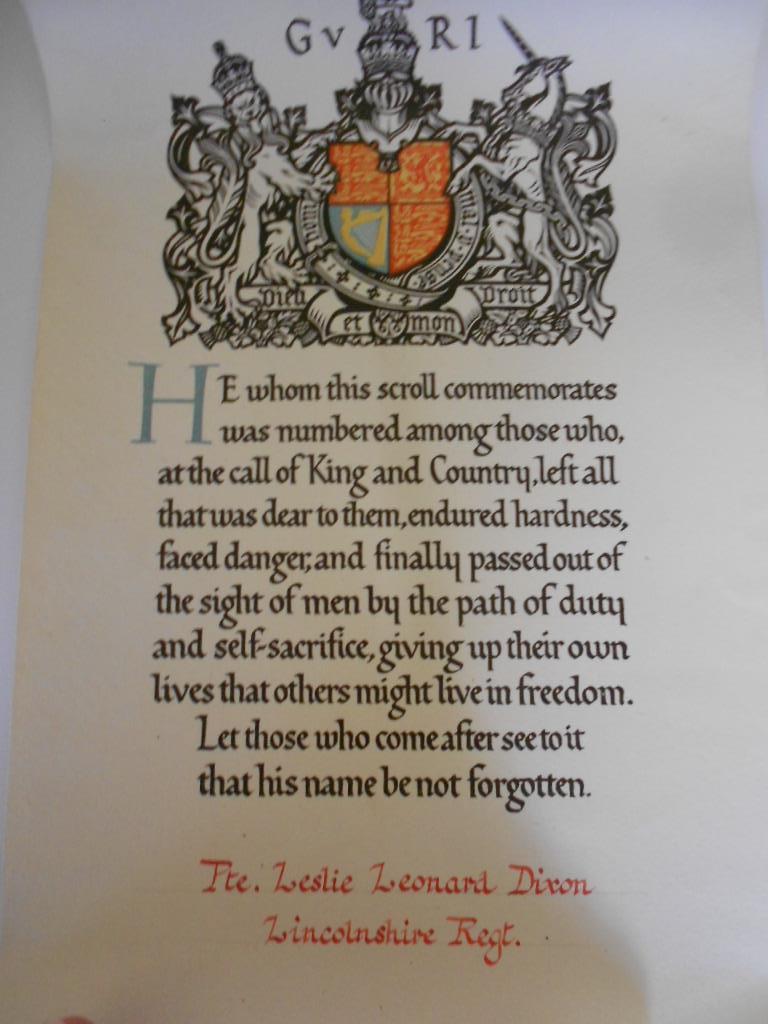 GV RI
Dieu Droit
et mon
HE whom this scroll commemorates
was numbered among those who,
at the call of King and Country, left all
that was dear to them, endured hardness,
faced danger, and finally passed out of
the sight of men by the path of duty
and self-sacrifice, giving up their own
lives that others might live in freedom.
Let those who come after see to it
that his name be not forgotten.
Pte. Leslie Leonard Dixon
Lincolnshire Regt.